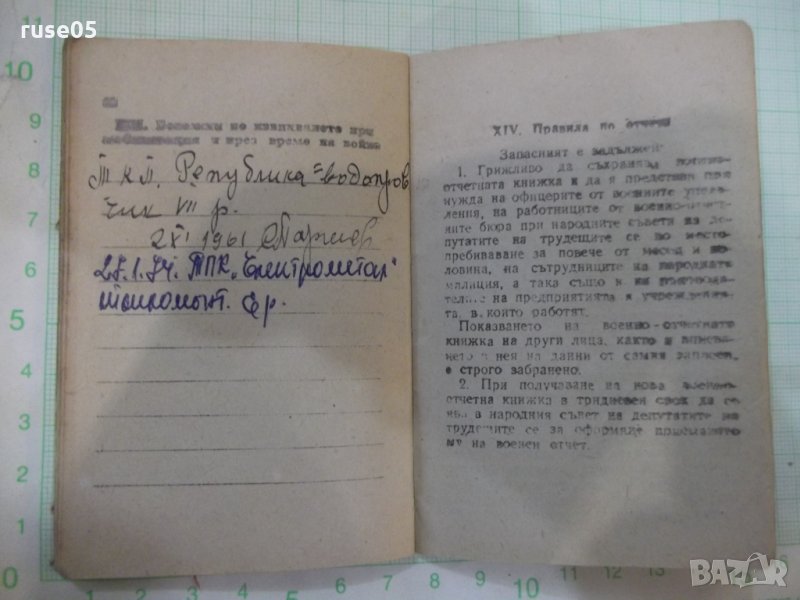 ruse05
XIII. Бележки по извикването при
мобилизация и през време на война
ТКП. Република = водопров
чик VII р.
2 XI 1961
25.1.74. ТПК „Електрометал"
р.
XIV. Правила по отчета
Запасният е задължен:
1. Грижливо да съхранява военно-
отчетната книжка и да я представи при
нужда на офицерите от военните управ-
ления, на работниците от военно-отчет-
ните бюра при народните съвети на де-
путатите на трудещите се по место-
пребиваване за повече от месец и по-
ловина, на сътрудниците на народната
милиция, а така също и на ръководи-
телите на предприятията и учрежденията,
в които работят.
Показването на военно-отчетната
книжка на други лица, както и вписва-
нето в нея на данни от самия запасен,
е строго забранено.
2. При получаване на нова военно-
отчетна книжка в тридневен срок да се
яви в народния съвет на депутатите на
трудещите се за оформяде приемането
му на военен отчет.
BAZAR